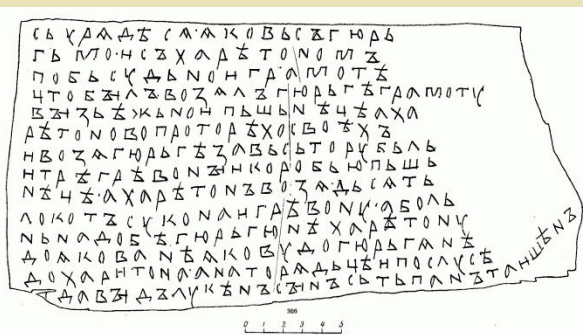 СЬ УРѦДѢСѦ·ѦКОВЬСЪГЮРЬ
ГЬМО·ИСЪХАРѢТОНОМЪ
ПОБЬСУДЬНОИГРАМОТѢ
ЦТОБЪІЛЪВОЗѦЛЪГЮРЬГѢГРАМОТУ
ВЪІЗЬѢЖЬНОИПЬШЬНѢЦѢАХА
РѢТОНОВОПРОТОРѢХОСВОѢХЪ
ИВОЗѦГЮРЬГѢЗАВЬСЬТОРУБЬЛЬ
ИТРѢГРѢВОНЪІИКОРОБЬЮПЬШЬ
НѢЦѢ·АХАРѢТОНЪВОЗѦДЬСѦТЬ
ЛОКОТЪСУКОНАИГРѢВОНУ·АБОЛЬ
НЬНАДОБѢГЮРЬГЮНѢХАРѢТОНУ
ДОѦКОВАНѢѦКОВУДОГЮРЬГѦНѢ
ДОХАРИТОНА·АНАТОРѦДЬЦѢИПОСЛУСѢ
ДАВЪІДЪЛУКѢНЪСЪІНЪИСЬТЬПАНЪТАИШѢНЪ
366
0 1 2 3 4 5